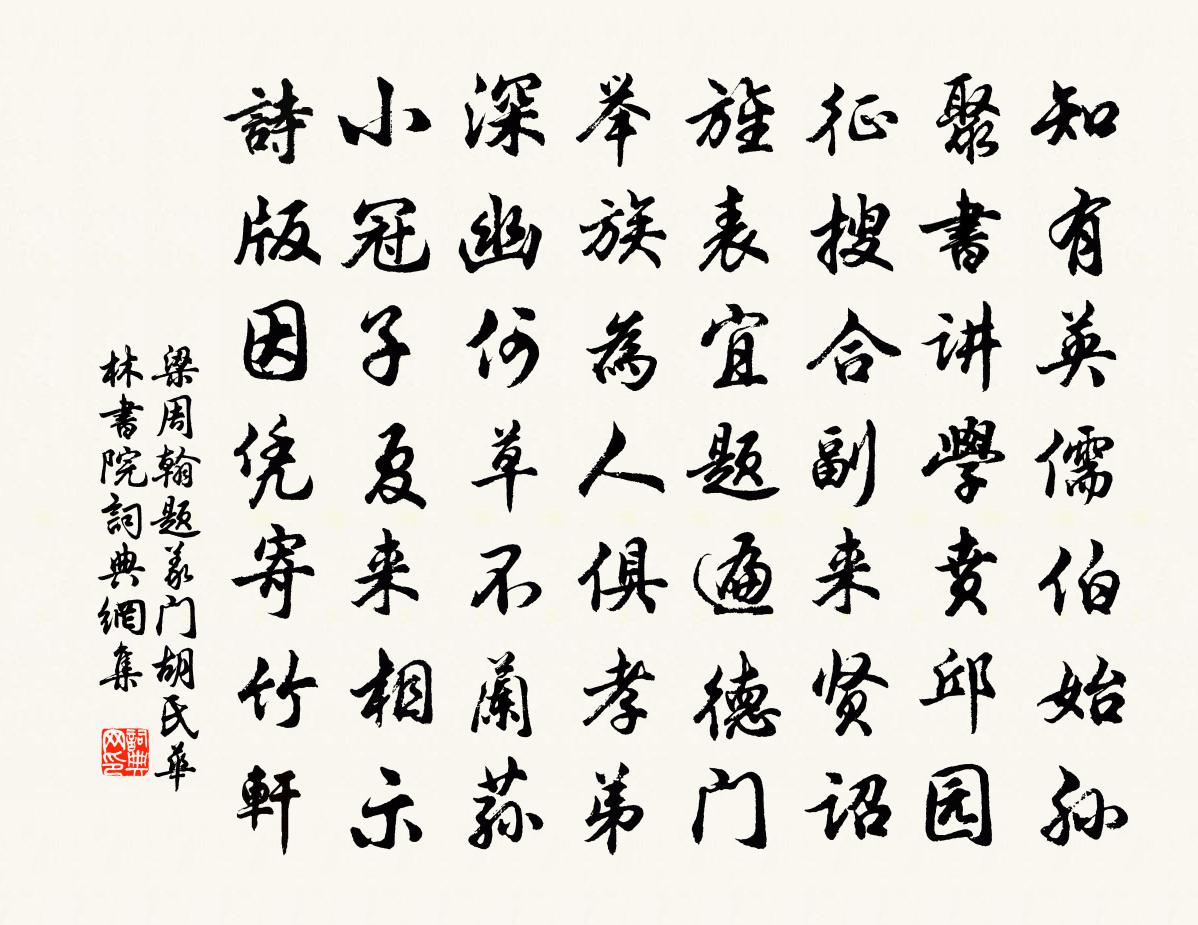 知有英儒伯始孙
聚書讲學賁邱园
征搜合副来贤诏
旌表宜题遍德门
举族為人俱孝弟
深幽何草不蘭荪
小冠子夏来相示
詩版因凭寄竹軒
梁周翰题义门胡氏華
林書院詞典網集
詞典网印